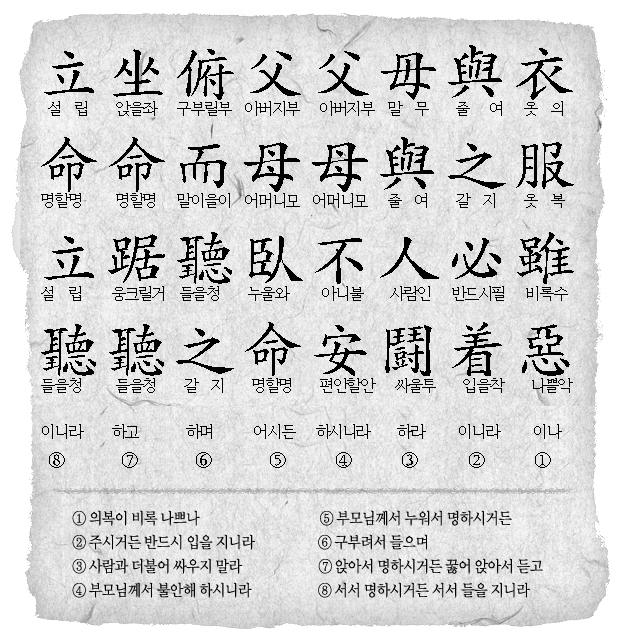 衣 옷 의 服 옷 복 雖 비록수 惡 나쁠악 이나 ①
與 줄 여 之 갈 지 必 반드시필 着 입을착 이니라 ②
毋 말 무 與 줄 여 人 사람인 鬪 싸울투 하라 ③
父 아버지부 母 어머니모 不 아니불 安 편안할안 하시니라 ④
父 아버지부 母 어머니모 臥 누울와 命 명할명 어시든 ⑤
俯 구부릴부 而 말이을이 聽 들을청 之 갈 지 하며 ⑥
坐 앉을좌 命 명할명 踞 웅크릴거 聽 들을청 하고 ⑦
立 설 립 命 명할명 立 설 립 聽 들을청 이니라 ⑧
① 의복이 비록 나쁘나
② 주시거든 반드시 입을 지니라
③ 사람과 더불어 싸우지 말라
④ 부모님께서 불안해 하시니라
⑤ 부모님께서 누워서 명하시거든
⑥ 구부려서 들으며
⑦ 앉아서 명하시거든 꿇어 앉아서 듣고
⑧ 서서 명하시거든 서서 들을 지니라